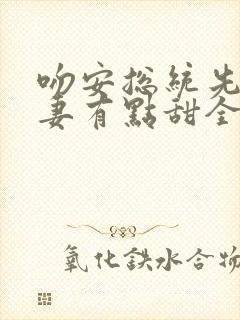 吻安総統先
妻有點甜全
氧化鉄水合物